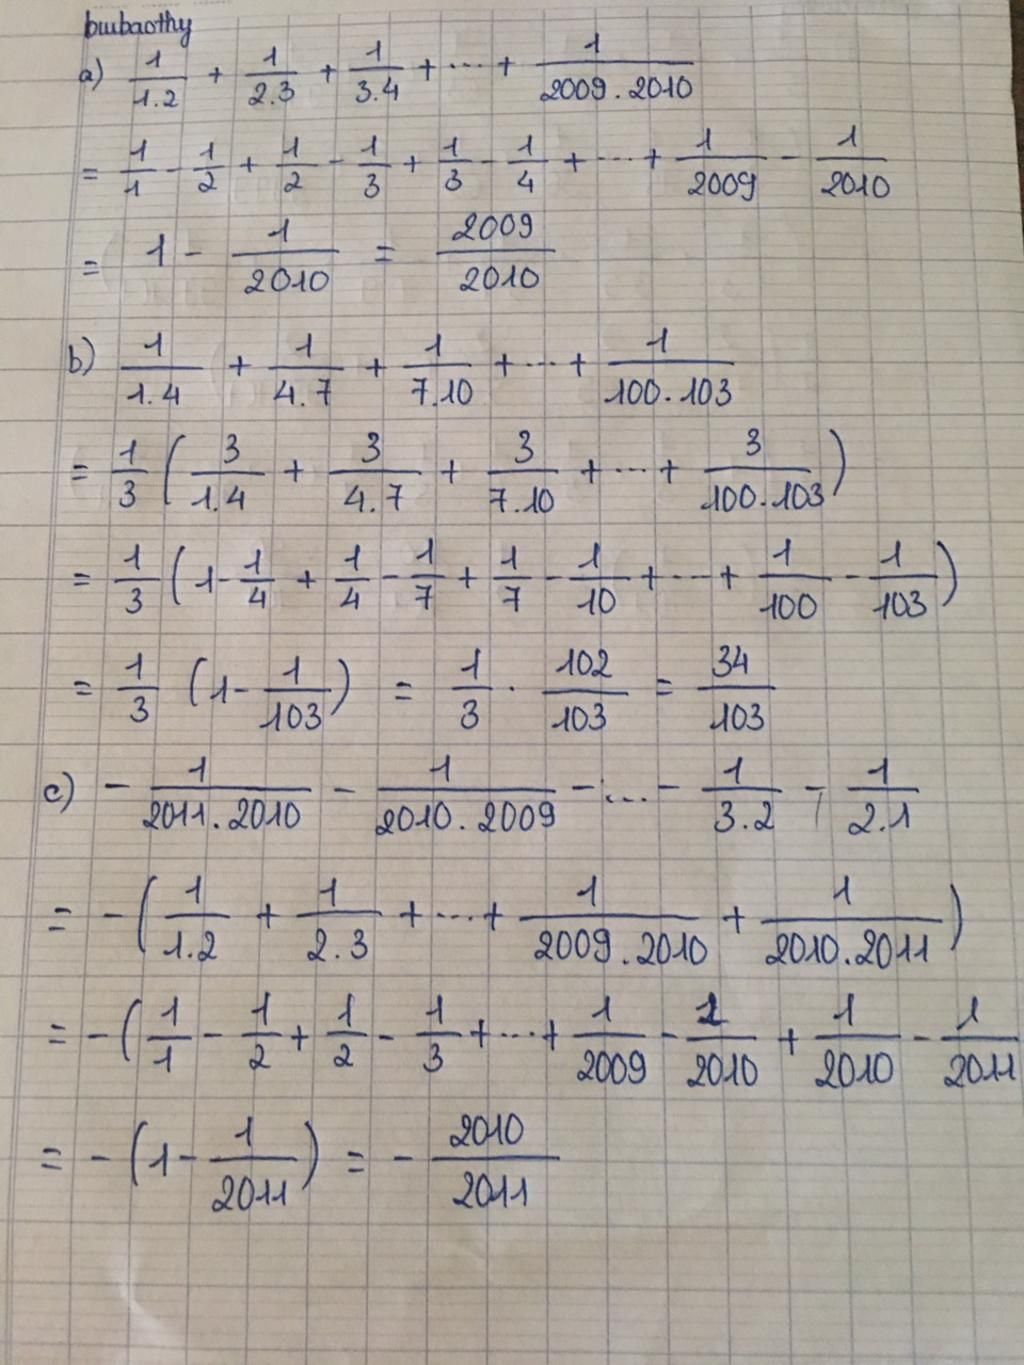 bwbaothy
a) 1/1.2 + 1/2.3 + 1/3.4 + ... + 1/2009.2010
= 1/1 - 1/2 + 1/2 - 1/3 + 1/3 - 1/4 + ... + 1/2009 - 1/2010
= 1 - 1/2010 = 2009/2010
b) 1/1.4 + 1/4.7 + 1/7.10 + ... + 1/100.103
= 1/3 (3/1.4 + 3/4.7 + 3/7.10 + ... + 3/100.103)
= 1/3 (1 - 1/4 + 1/4 - 1/7 + 1/7 - 1/10 + ... + 1/100 - 1/103)
= 1/3 (1 - 1/103) = 1/3 . 102/103 = 34/103
c) - 1/2011.2010 - 1/2010.2009 - ... - 1/3.2 - 1/2.1
= - (1/1.2 + 1/2.3 + ... + 1/2009.2010 + 1/2010.2011)
= - (1/1 - 1/2 + 1/2 - 1/3 + ... + 1/2009 - 1/2010 + 1/2010 - 1/2011
= - (1 - 1/2011) = - 2010/2011